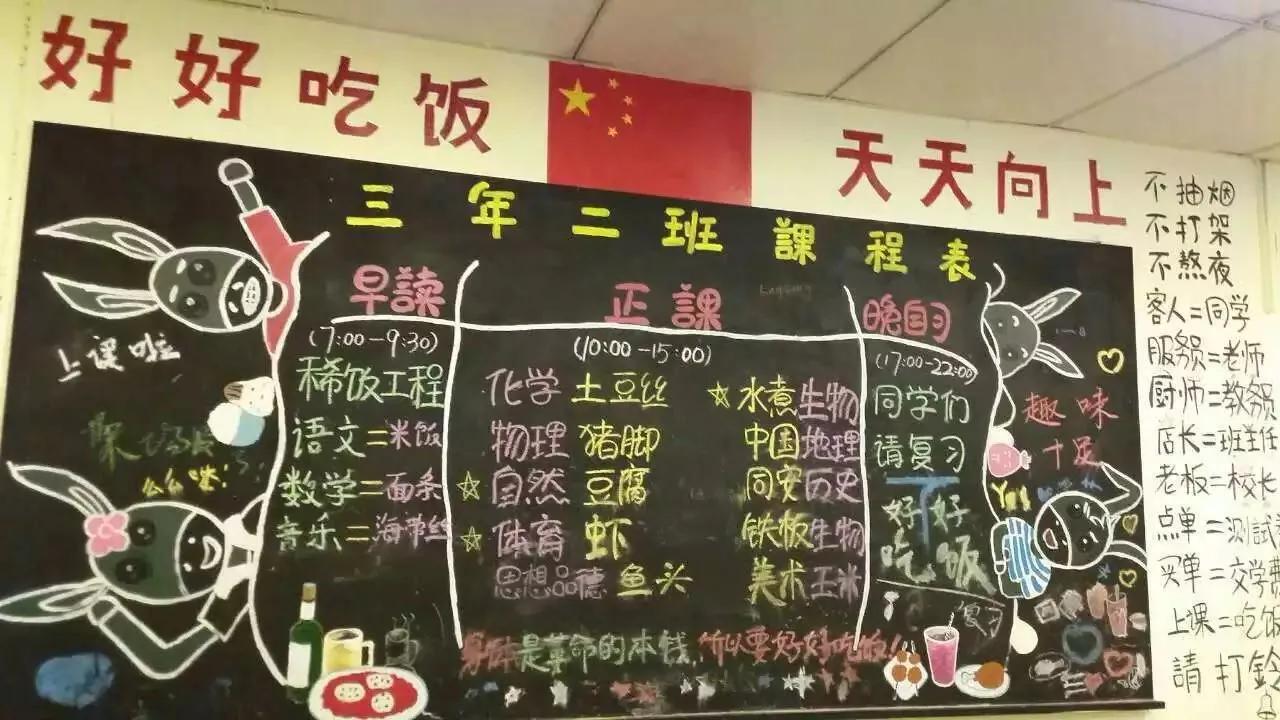 好好吃饭 天天向上
三年二班課程表
早讀
(7:00-9:30)
稀饭工程
语文=米饭
数学=面条
音乐=海带丝
正課
(10:00-15:00)
化学 土豆丝
物理 猪脚
自然 豆腐
体育 虾
思想品德 鱼头
水煮生物
中国地理
同安历史
铁板生物
美术玉米
晚自习
(17:00-22:00)
同学们
请复习
好好
吃饭
身体是革命的本钱,所以要好好吃饭!
上课啦
么么哒!
趣味
十足
Yes
复习
不抽烟
不打架
不熬夜
客人=同学
服务员=老师
厨师=教务员
店长=班主任
老板=校长
点单=测试
买单=交学费
上课=吃饭
請打鈴